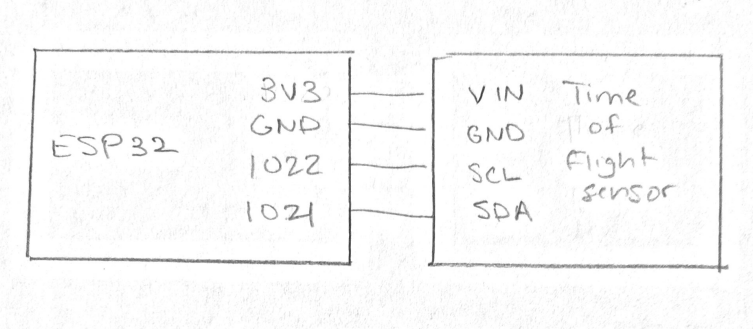 ESP32
3V3
GND
IO22
IO21
VIN
GND
SCL
SDA
Time
of
flight
sensor